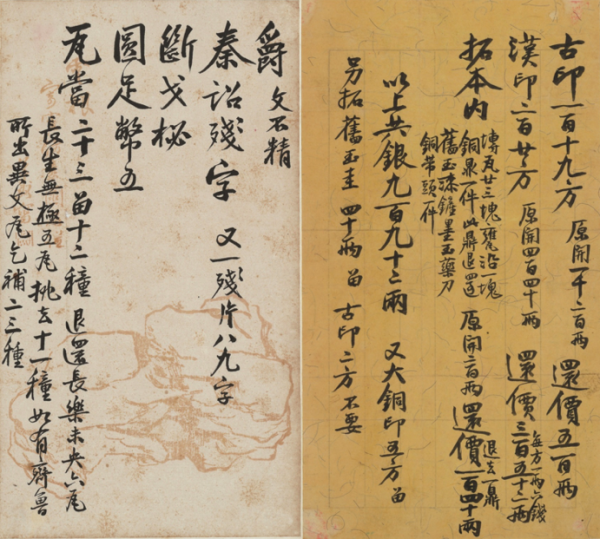 古印一百十九方 原開一千二百兩 還價五百兩
漢印二百廿方 原開四百四十兩 還價三百五十二兩 每方一兩六錢
拓本内
塼瓦廿三塊甕沿一塊
銅泉一件以鼎退還
舊玉墨玉藥刀
銅帶頭一件
原開二百兩 還價一百四十兩 退去一鼎
以上共銀九百九十二兩 又大銅印五方留
另拓舊玉圭 四十兩 留 古印二方不要
爵 文不精
秦詔殘字 又一殘片八九字
斷戈柲
圓足幣五
瓦當 二十三留十二種 退還長樂未央六瓦
長生無極五瓦 挑去十一種 如有齊魯
所出異文瓦乞補二三種